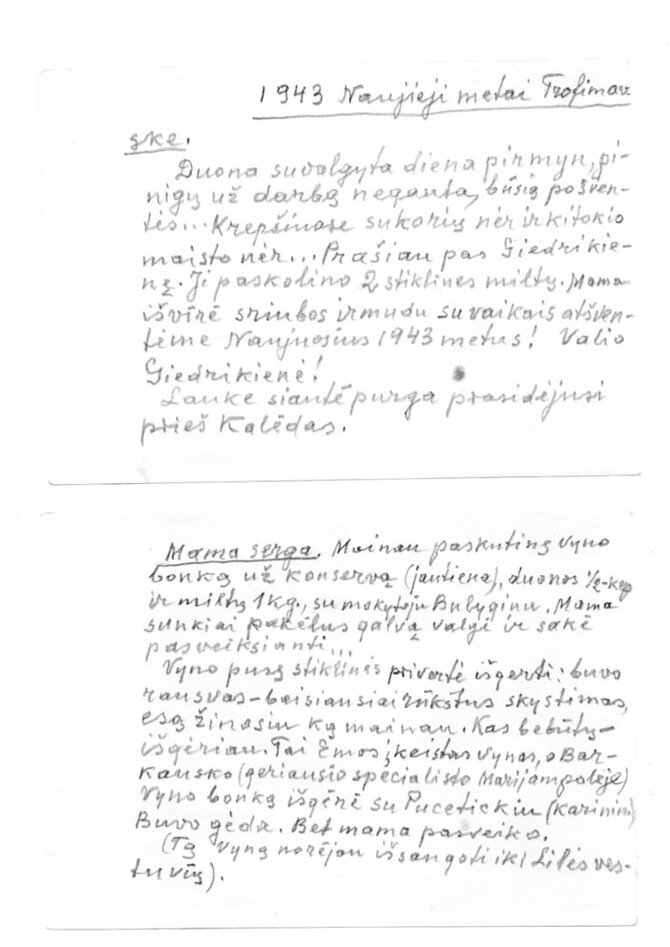 1943 Naujieji metai Trofimov
ske.
Duona suvalgyta diena pirmyn, pi-
nigų už darbą negauta, būsią pošven-
tės... Krepšinase sukorių nėr ir kitokio
maisto nėr... Prašiau pas Giedrikie-
nę. Ji paskolino 2 stiklines miltų. Mama
išvirė sriubos ir mudu su vaikais atšven-
tėme Naujuosius 1943 metus! Valio
Giedrikienė!
Lauke siautė purga prasidėjusi
prieš Kalėdas.
Mama serga. Mainau paskutinę vyno
bonką už konservą (jautiena), duonos 1/2 kep
ir miltų 1 kg., su mokytoju Bulyginu. Mama
sunkiai pakėlus galvą valgi ir sakė
pasveiksianti...
Vyno pusę stiklinės privertė išgerti: buvo
rausvas-baisiausiai rūkštus skystimas,
esą žinosiu ką mainau. Kas bebūtų-
išgėriau. Tai Emos įkeistas vynas, o Bar-
kausko (geriausio specialisto Marijampolėje)
vyno bonką išgėrė su Pucetickiu (karinin)
Buvo gėda. Bet mama pasveiko.
(Tą vyną norėjau išsaugoti iki Lilės ves-
tuvių).